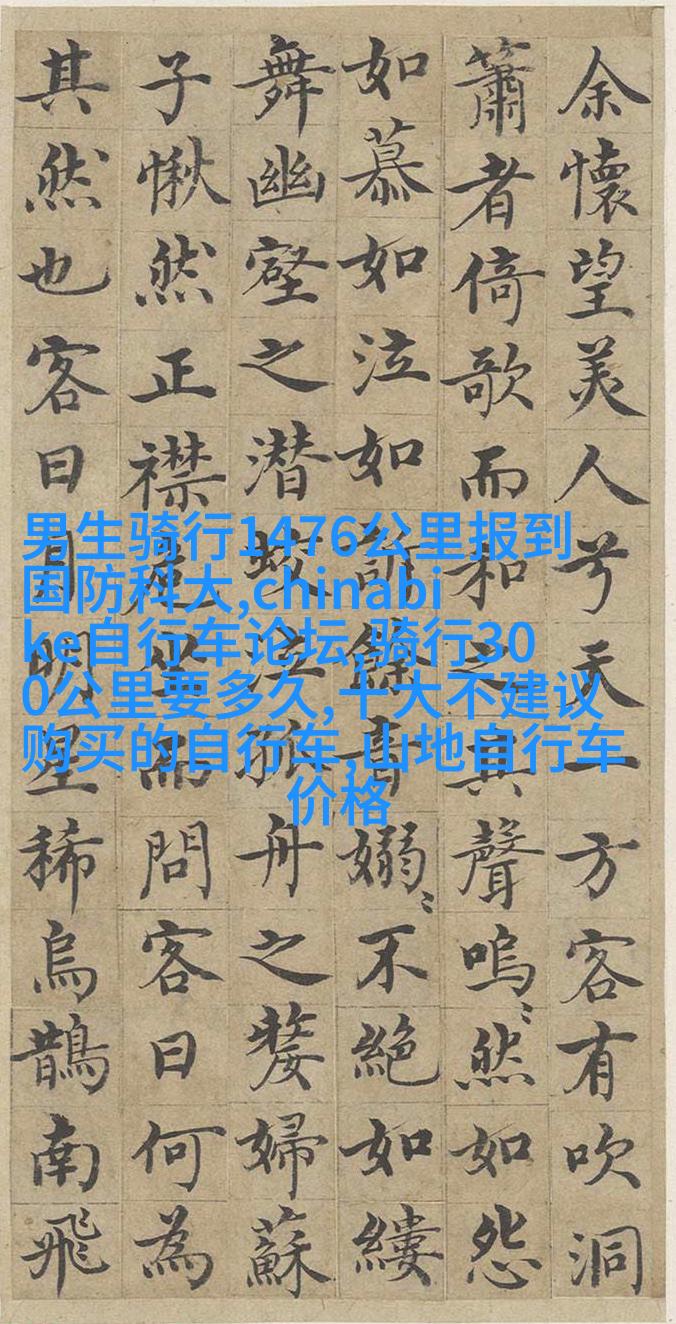 余懷望美人兮天一方客有吹洞
簫者倚歌而和之其聲嗚〻然如怨
如慕如泣如訴餘音嫋〻不絕如縷
舞幽壑之潜蛟泣孤舟之嫠婦蘇
子愀然正襟危坐而問客曰何為
其然也客曰月明星稀烏鵲南飛
男生骑行1476公里报到
国防科大,chinabi
ke自行车论坛,骑行30
0公里要多久,十大不建议
购买的自行车,山地自行车
价格